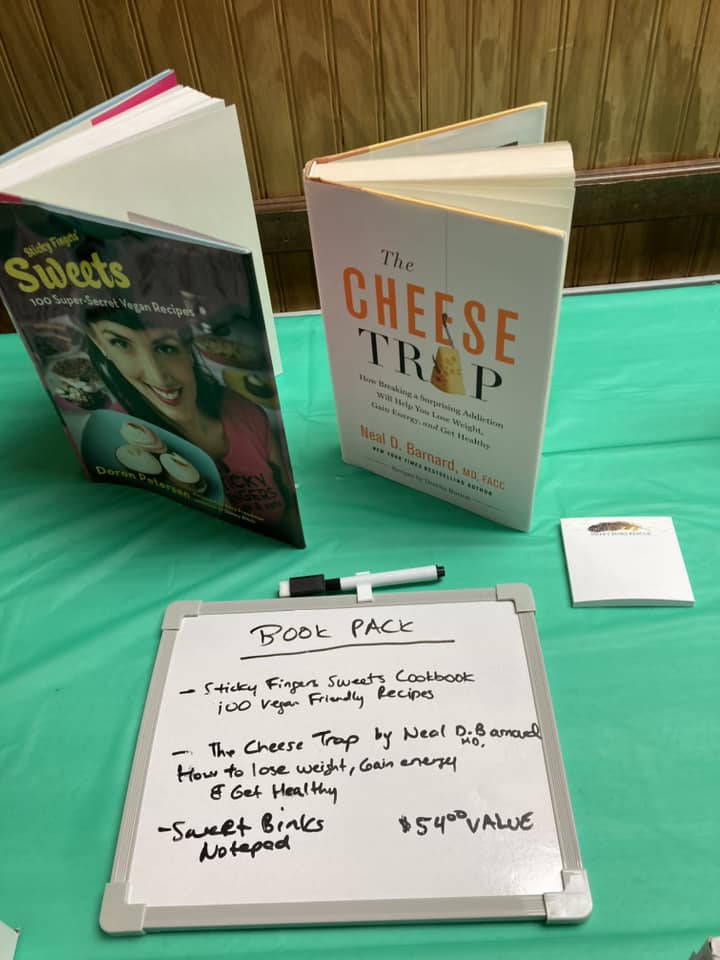 Sticky Fingers'
Sweets
100 Super-Secret Vegan Recipes
Doron Petersan
The
CHEESE
TRAP
How Breaking a Surprising Addiction
Will Help You Lose Weight,
Gain Energy, and Get Healthy
Neal D. Barnard, MD, FACC
NEW YORK TIMES BESTSELLING AUTHOR
Recipes by Dreena Burton
SWEET BINKS RESCUE
BOOK PACK
- Sticky Fingers Sweets Cookbook
100 Vegan Friendly Recipes
- The Cheese Trap by Neal D. Barnard
MD.
How to lose weight, Gain energy
& Get Healthy
- Sweet Binks $54.00 VALUE
Notepad